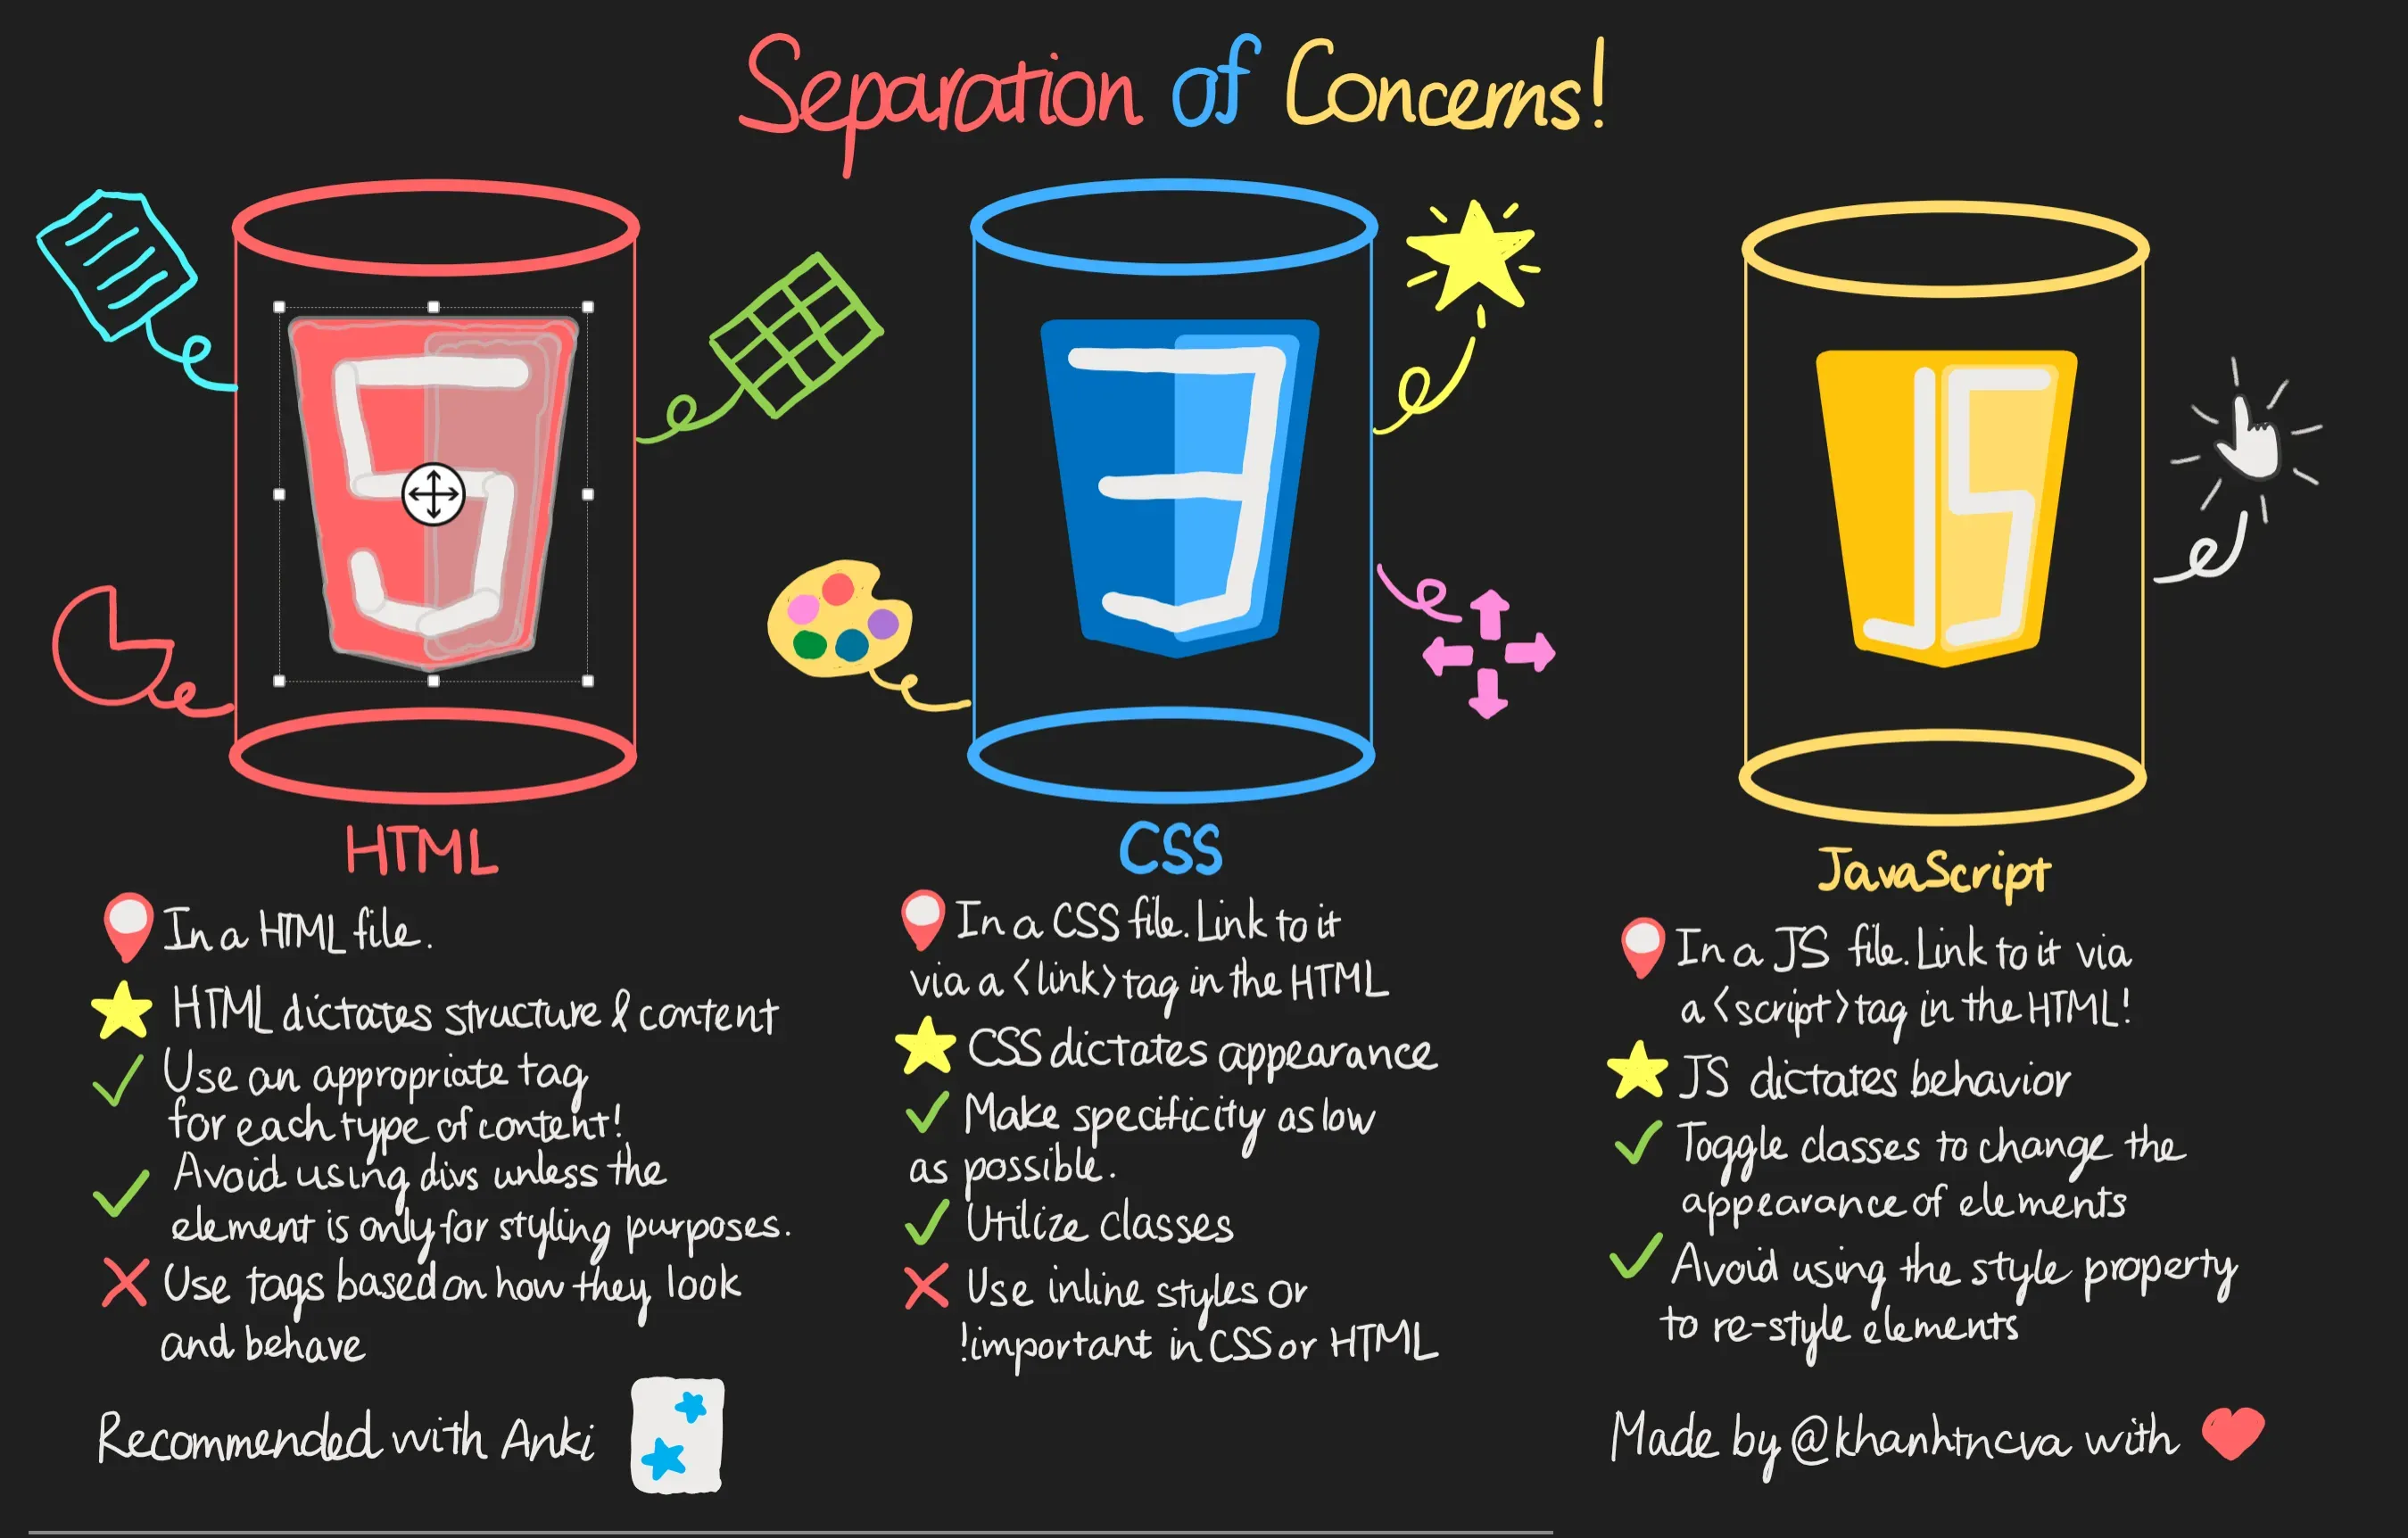 Separation of Concerns!
5
3
JS
HTML
In a HTML file.
HTML dictates structure & content
Use an appropriate tag
for each type of content!
Avoid using divs unless the
element is only for styling purposes.
Use tags based on how they look
and behave
CSS
In a CSS file. Link to it
via a <link> tag in the HTML
CSS dictates appearance
Make specificity as low
as possible.
Utilize classes
Use inline styles or
!important in CSS or HTML
JavaScript
In a JS file. Link to it via
a <script> tag in the HTML!
JS dictates behavior
Toggle classes to change the
appearance of elements
Avoid using the style property
to re-style elements
Recommended with Anki
Made by @khanhtncva with